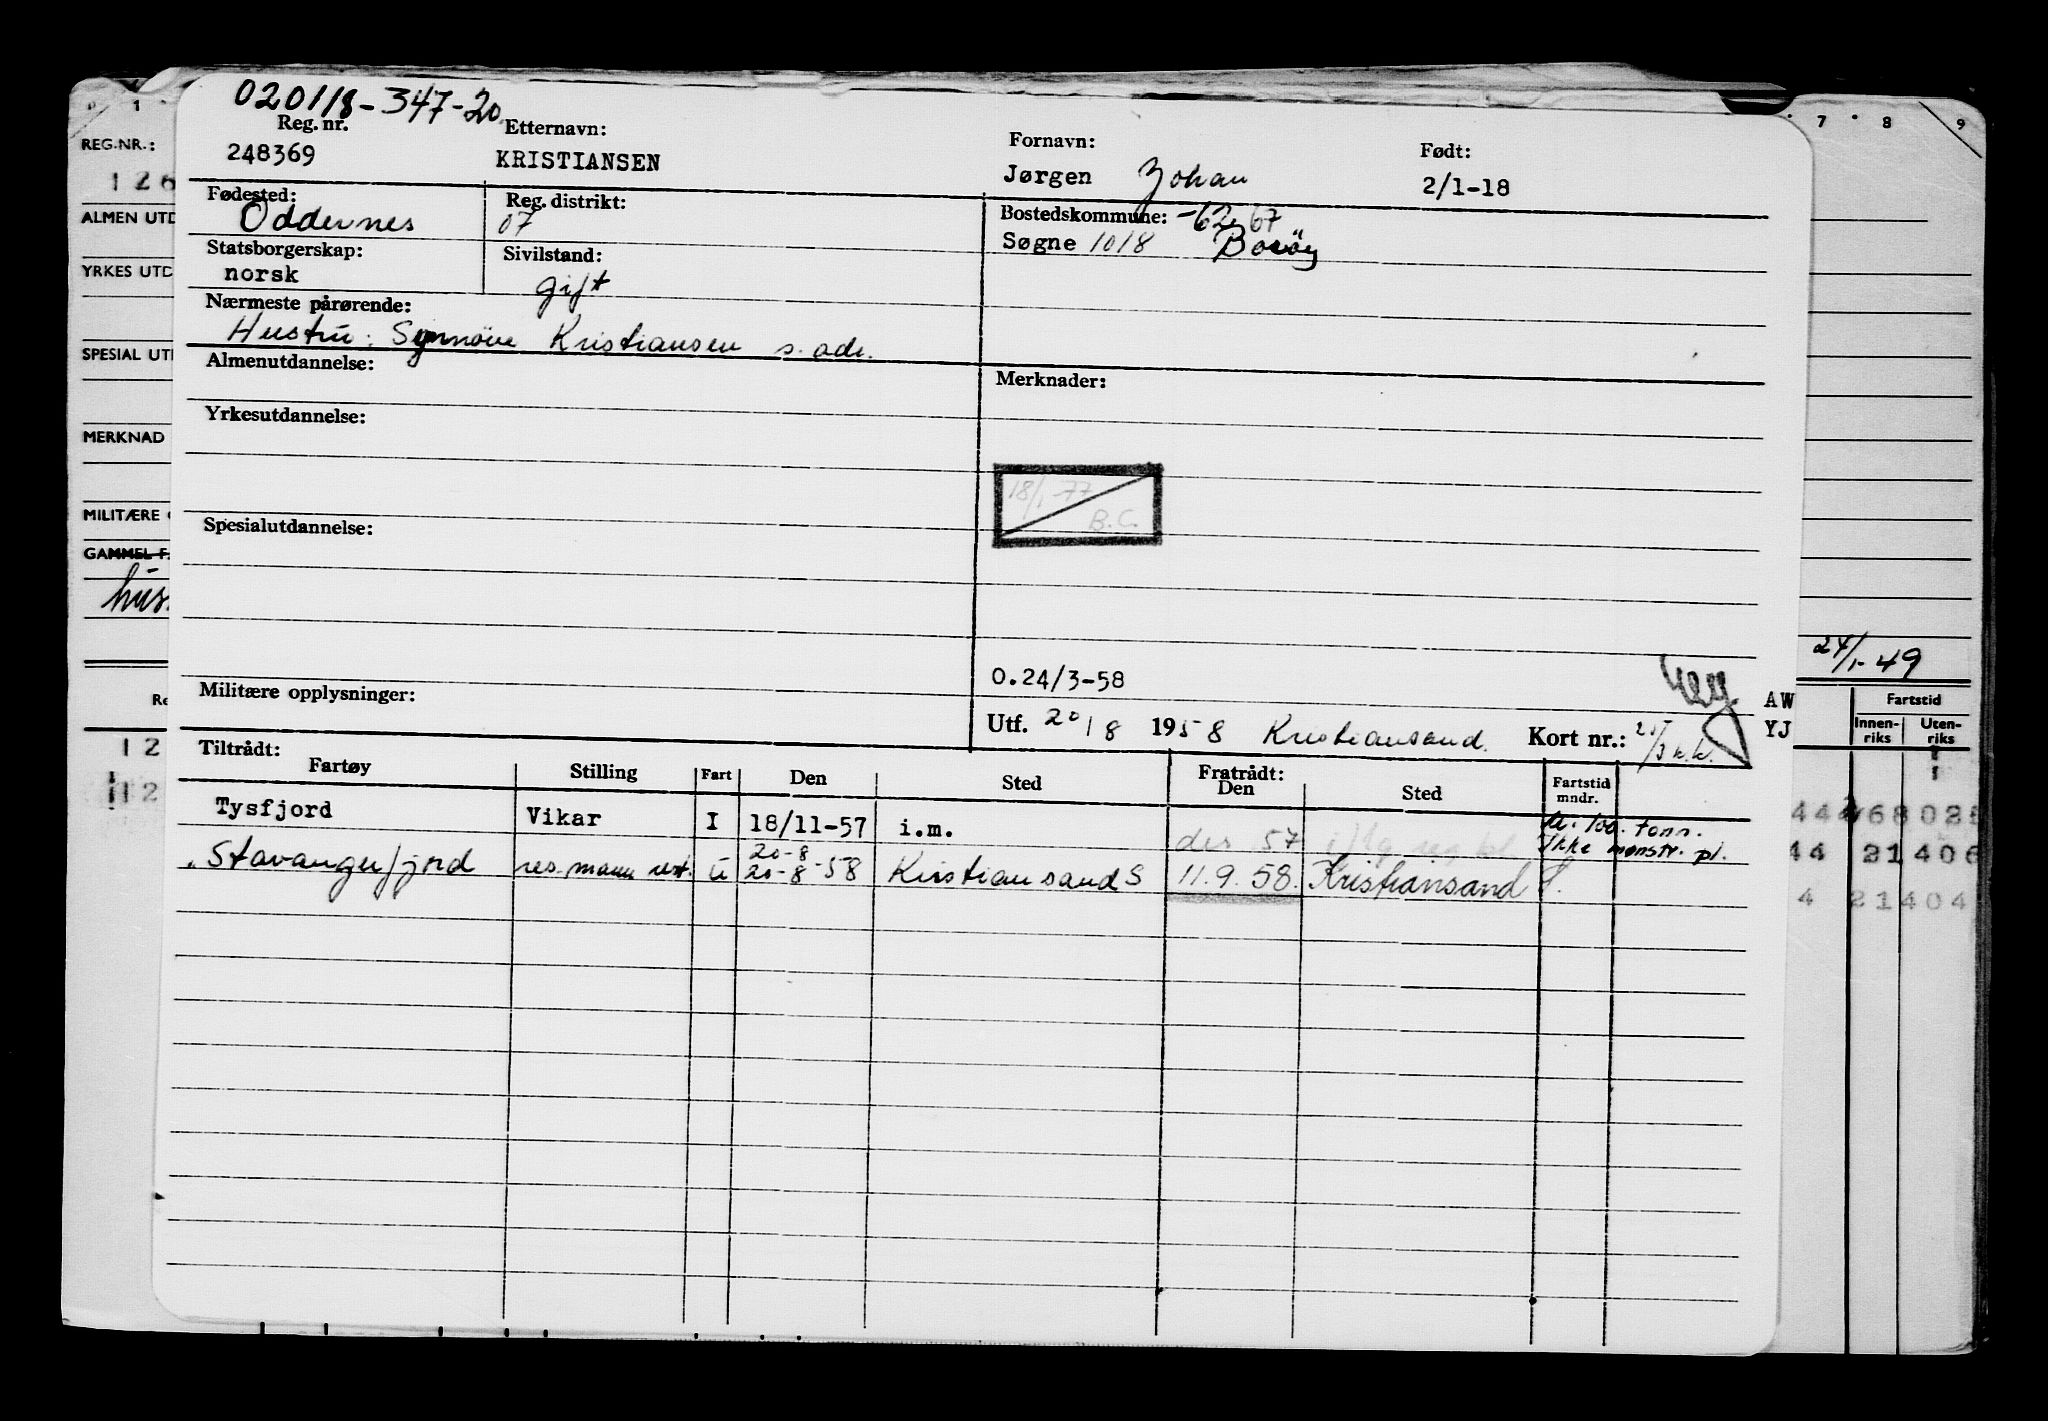 020118-347-20
Reg. nr. Etternavn: Fornavn: Født:
248369 KRISTIANSEN Jørgen Johan 2/1-18
Fødested: Reg. distrikt: Bostedskommune: -62, 67
Oddernes 07 Søgne 1018 Borøy
Statsborgerskap: Sivilstand:
norsk gift
Nærmeste pårørende:
Hustru: Synnöve Kristiansen s. adr.
Almenutdannelse: Merknader:
Yrkesutdannelse:
18/1-77
B.C.
Spesialutdannelse:
O.24/3-58
Militære opplysninger: Utf. 20/8 1958 Kristiansand. Kort nr.:
Tiltrådt: Fratrådt:
Fartøy Stilling Fart Den Sted Den Sted Fartstid mndr.
Tysfjord Vikar I 18/11-57 i.m. des 57 u. 100. tonn.
Ikke mønstr. pl.
20-8
Stavangerfjord res. mann rest. u 20-8-58 Kristiansand S 11.9.58. Kristiansand S.
0 1
REG.NR.:
126
ALMEN UTD
YRKES UTD
SPESIAL UTD
MERKNAD
MILITÆRE
GAMMEL F.
12
12
7 8 9
24/1-49
AW
YJ
Fartstid
Innen-riks Uten-riks
44 68025
44 21406
4 21404